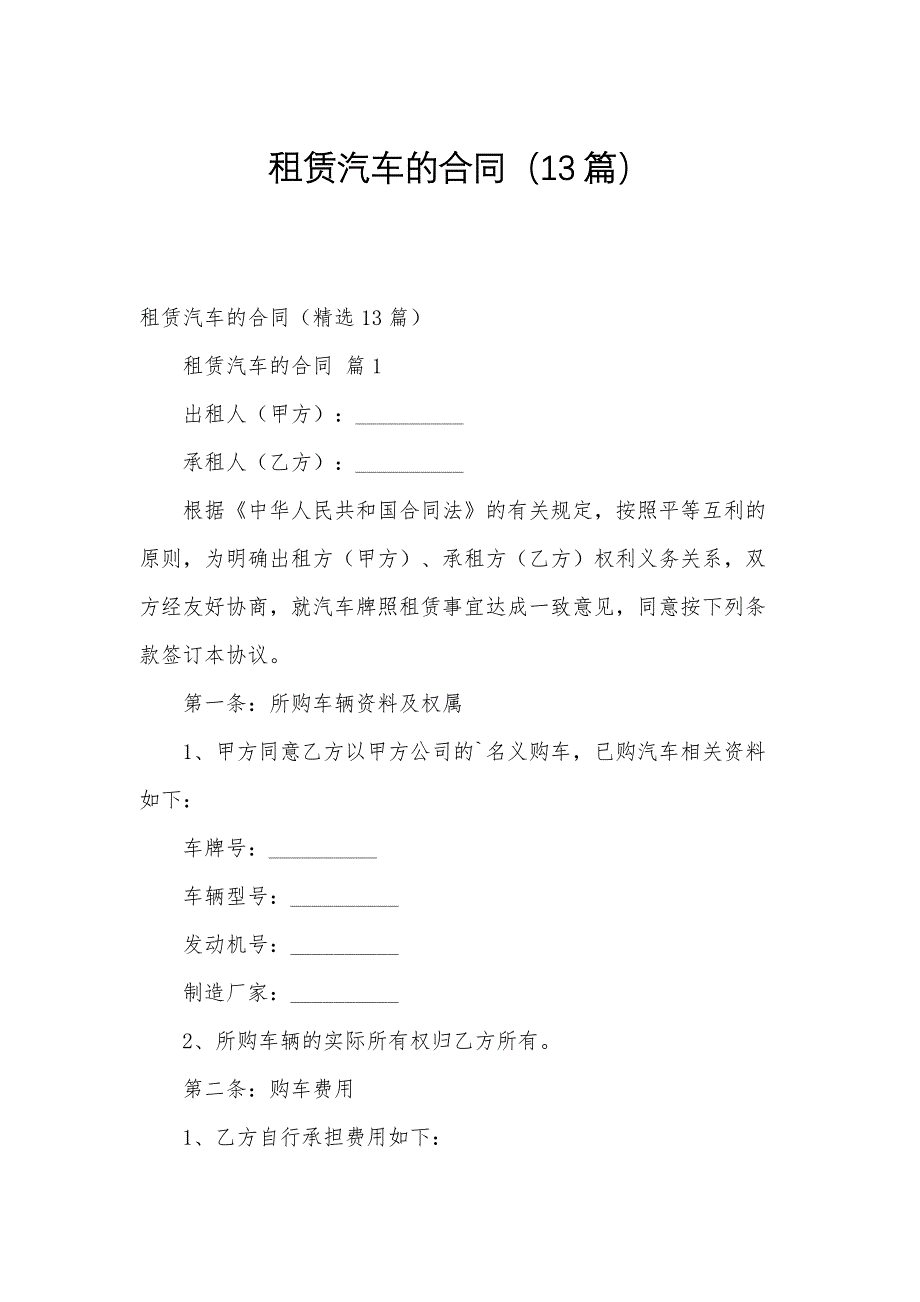 租赁汽车的合同（13篇）
租赁汽车的合同（精选13篇）
租赁汽车的合同 篇1
出租人（甲方）：__________
承租人（乙方）：__________
根据《中华人民共和国合同法》的有关规定，按照平等互利的
原则，为明确出租方（甲方）、承租方（乙方）权利义务关系，双
方经友好协商，就汽车牌照租赁事宜达成一致意见，同意按下列条
款签订本协议。
第一条：所购车辆资料及权属
1、甲方同意乙方以甲方公司的`名义购车，已购汽车相关资料
如下：
车牌号：__________
车辆型号：__________
发动机号：__________
制造厂家：__________
2、所购车辆的实际所有权归乙方所有。
第二条：购车费用
1、乙方自行承担费用如下：